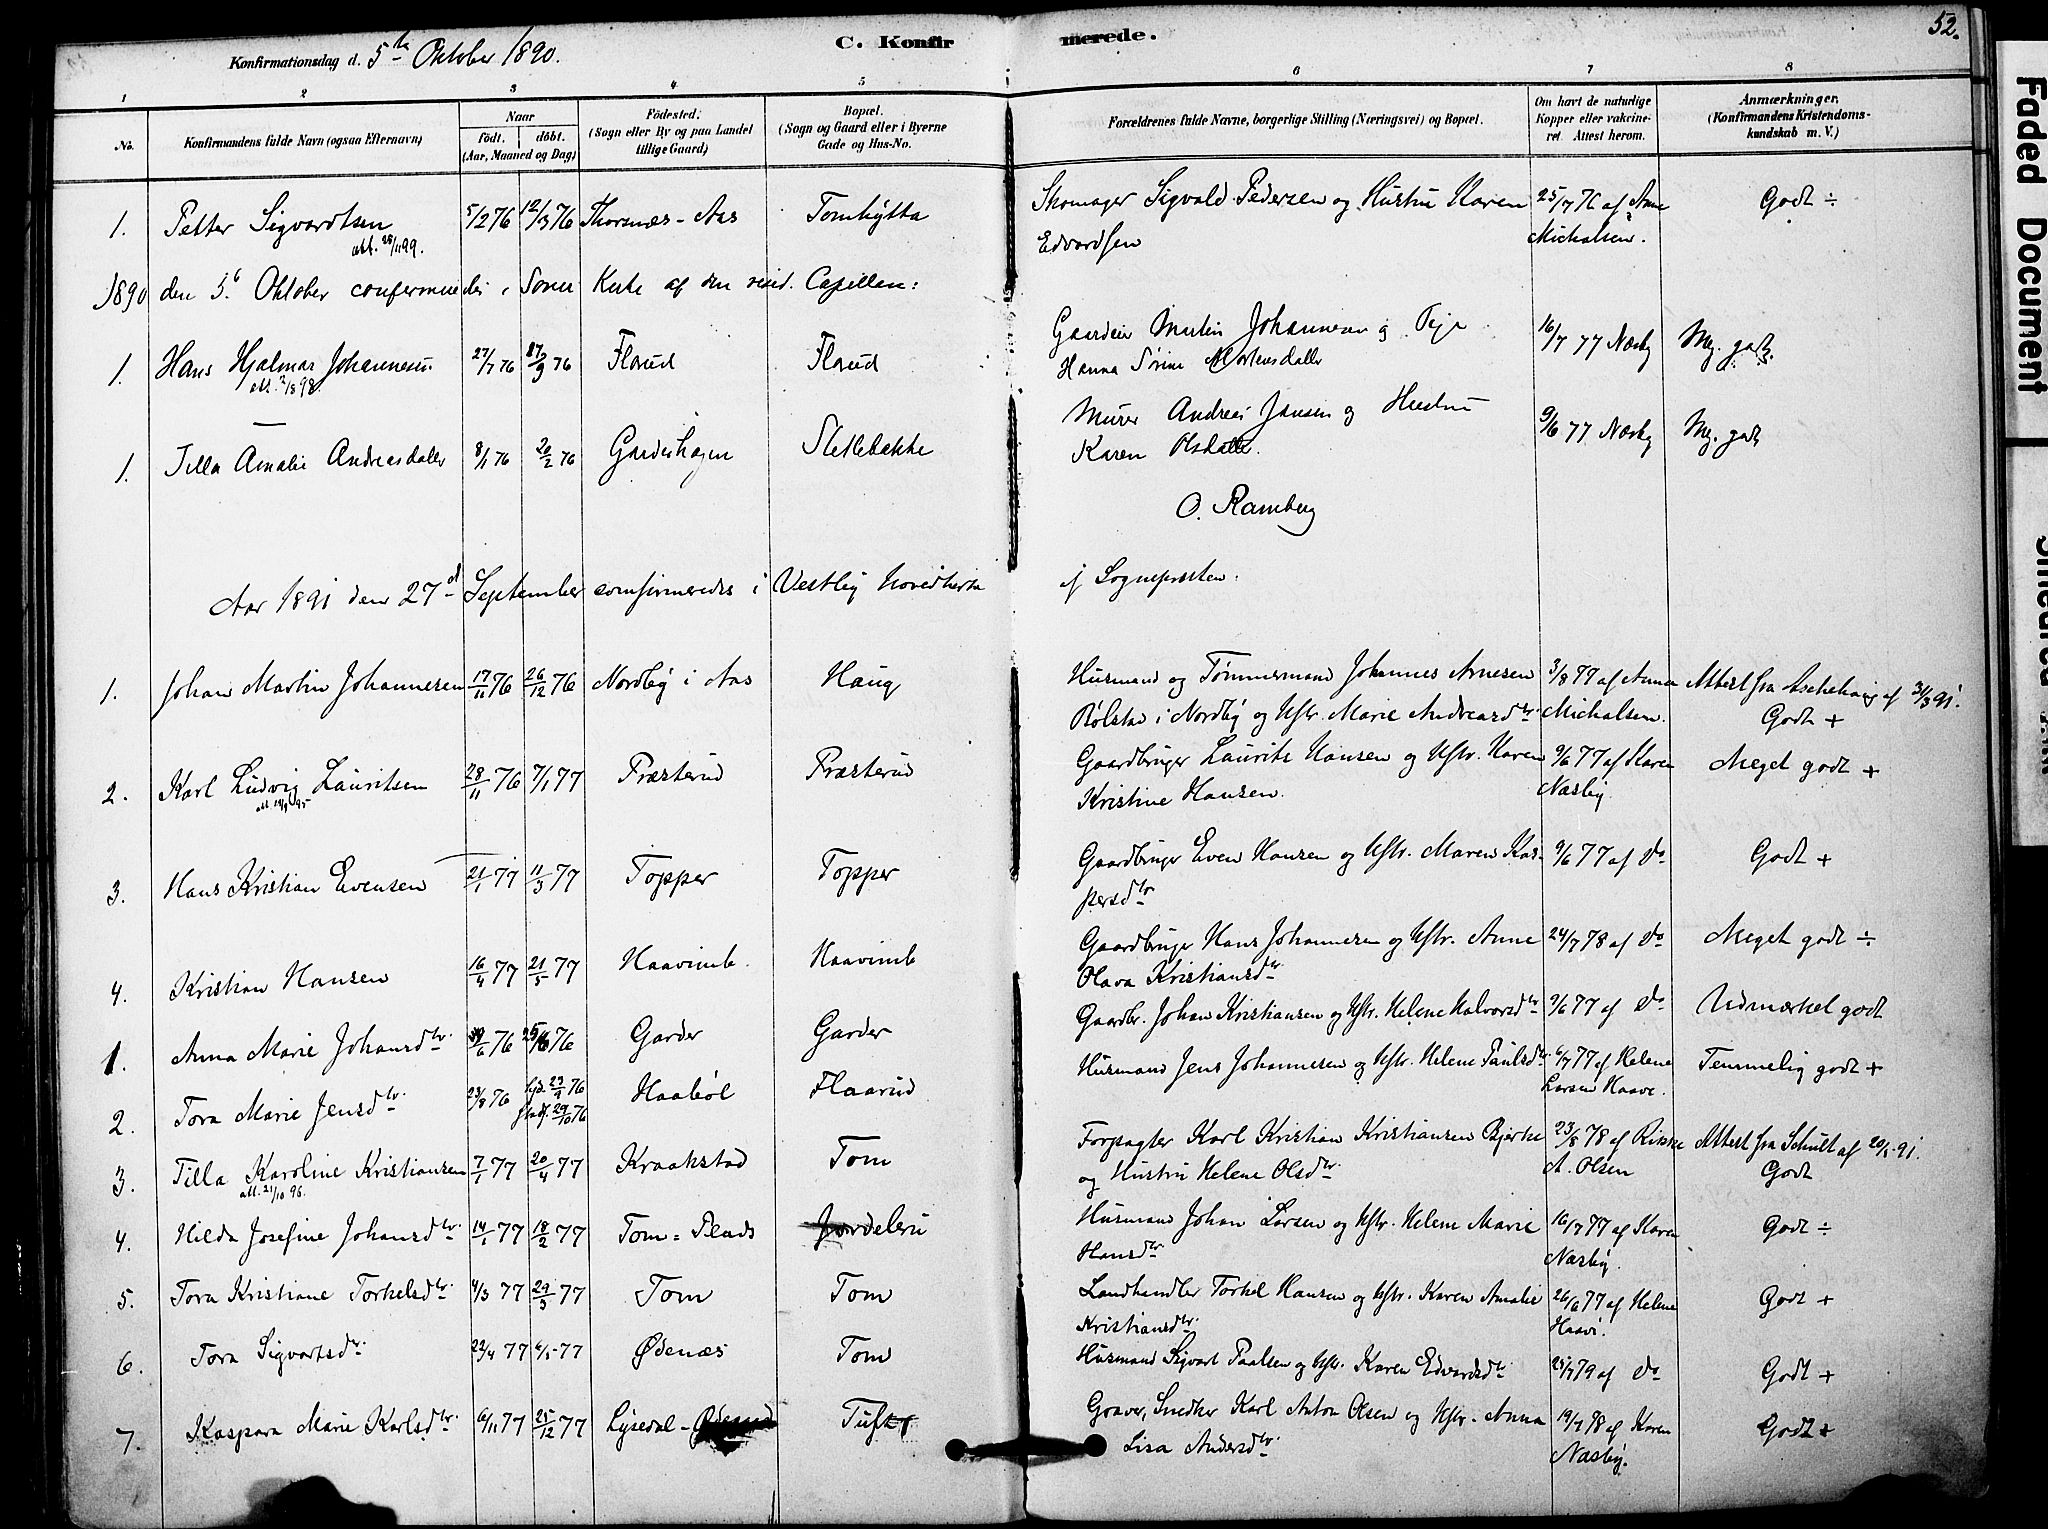 Konfirmationsdag d. 5te Oktober 1890.
C. Konfirmerede.
52.
1 2 3 4 5 6 7 8
No. Konfirmandens fulde Navn (ogsaa Efternavn) Naar födt. döbt. (Aar, Maaned og Dag) Födested. (Sogn eller By og paa Landet tillige Gaard) Bopæl. (Sogn og Gaard eller i Byerne Gade og Hus-No. Forældrenes fulde Navne, borgerlige Stilling (Næringsvei) og Bopæl. Om havt de naturlige Kopper eller vakcineret. Attest herom. Anmærkninger. (Konfirmandens Kristendomskundskab m. V.)
1. Petter Sigvardtsen 5/2 76 12/3 76 Thorsnæs - Aas Tomhytta Skomager Sigvald Pedersen og Hustru Karen 25/7 76 af Anne Godt ÷
att. 28/11 99. Edvardsen Michalsen.
1890 den 5te Oktober confirmeredes i Soner Kirke af den resid. Capellan:
1. Hans Hjalmar Johannesen 27/7 76 /9 76 Florud Florud Gaardeier Martin Johannesen og Pige 16/7 77 Næsby Mg. godt.
att. 2/8 98. Hanna Sörine Mortensdatter
1. Tilla Amalie Andreasdatter 8/1 76 20/2 76 Gardershagen Sletlebakke Murer Andreas Jansen og Hustru 9/6 77 Næsby Mg. godt
Karen Olsdatter.
O. Ramberg
Aar 1891 den 27de September confirmeredes i Vestby Hovedkirke af Sognepræsten:
1. Johan Martin Johannesen 17/11 76 26/12 76 Nordby i Aas Haug Husmand og Tømmermand Johannes Arnesen 3/8 77 af Anna Attest fra Aschehaug af 31/3 91.
Rölstad i Nordby og Hstr. Marie Andreasdtr. Michalsen. Godt +
2. Karl Ludvig Lauritsen 28/11 76 7/1 77 Præsterud Præsterud Gaardbruger Laurits Hansen og Hstr. Karen 9/6 77 af Karen Meget godt +
Kristine Hansen. Næsby
3. Hans Kristian Evensen 21/1 77 11/3 77 Topper Topper Gaardbruger Even Hansen og Hstr. Maren Kas- 9/6 77 af do Godt +
persdtr
4. Kristian Hansen 16/4 77 21/5 77 Haavimb. Haavimb Gaardbruger Hans Johannesen og Hstr. Anne 24/7 78 af do Meget godt ÷
Olava Kristiansdtr
1. Anna Marie Johansdtr. /6 76 25/6 76 Garder Garder Gaardbr. Johan Kristiansen og Hstr. Helene Halvorsdtr 9/6 77 af do Udmærket godt
2. Tora Marie Jensdtr. 23/8 76 hjd. 23/9 76 stadf. 29/10 76 Haaböl Flaarud Husmand Jens Johannesen og Hstr. Helene Paulsdtr. 6/7 77 af Helene Temmelig godt +
Larsen Haave.
3. Tilla Karoline Kristiansen 7/1 77 20/4 77 Kraakstad Tom Forpagter Karl Kristian Kristiansen Bjerke 23/8 78 af Rikke Attest fra Schult af 20/5 91.
att. 21/10 96. og Hustru Helene Olsdtr A. Olsen Godt
4. Hilda Josefine Johansdtr. 14/1 77 18/2 77 Tom = Plads Jordeleru Husmand Johan Larsen og Hstr. Helene Marie 16/7 77 af Karen Godt ÷
Hansdtr Næsby.
5. Tora Kristiane Torkelsdtr. 4/3 77 29/3 77 Tom Tom Landhandler Torkel Hansen og Hstr. Karen Amalie 26/6 77 af Helene Godt +
Kristiansdtr. Haavi.
6. Tora Sigvartsdtr. 22/4 77 6/5 77 Ødenæs Tom Husmand Sigvart Paulsen og Hstr. Karen Edvardsdtr 25/7 79 af do Godt +
7. Kaspara Marie Karlsdtr. 6/11 77 25/12 77 Lysedal - Tufter Graver, Snedker Karl Anton Olsen og Hstr. Anna 19/7 78 af Karen Godt +
Lisa Andersdtr. Næsby.
Faded Document